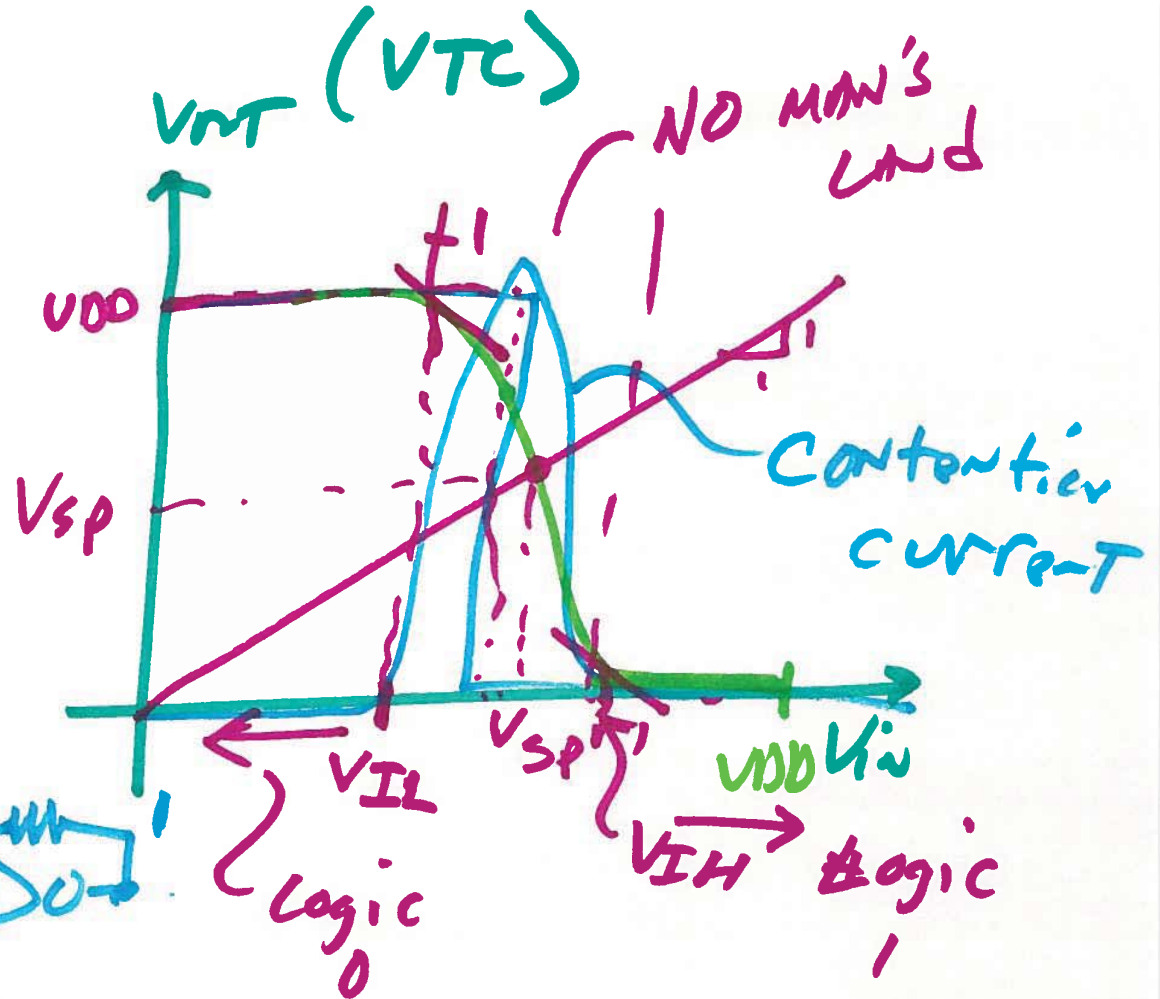 (VTC)
VOUT
NO MAN'S
LAND
-1
VDD
1
1
Contention
current
VSP
VSP
VIL
VDD Vin
VIH
Logic
1
Logic
0